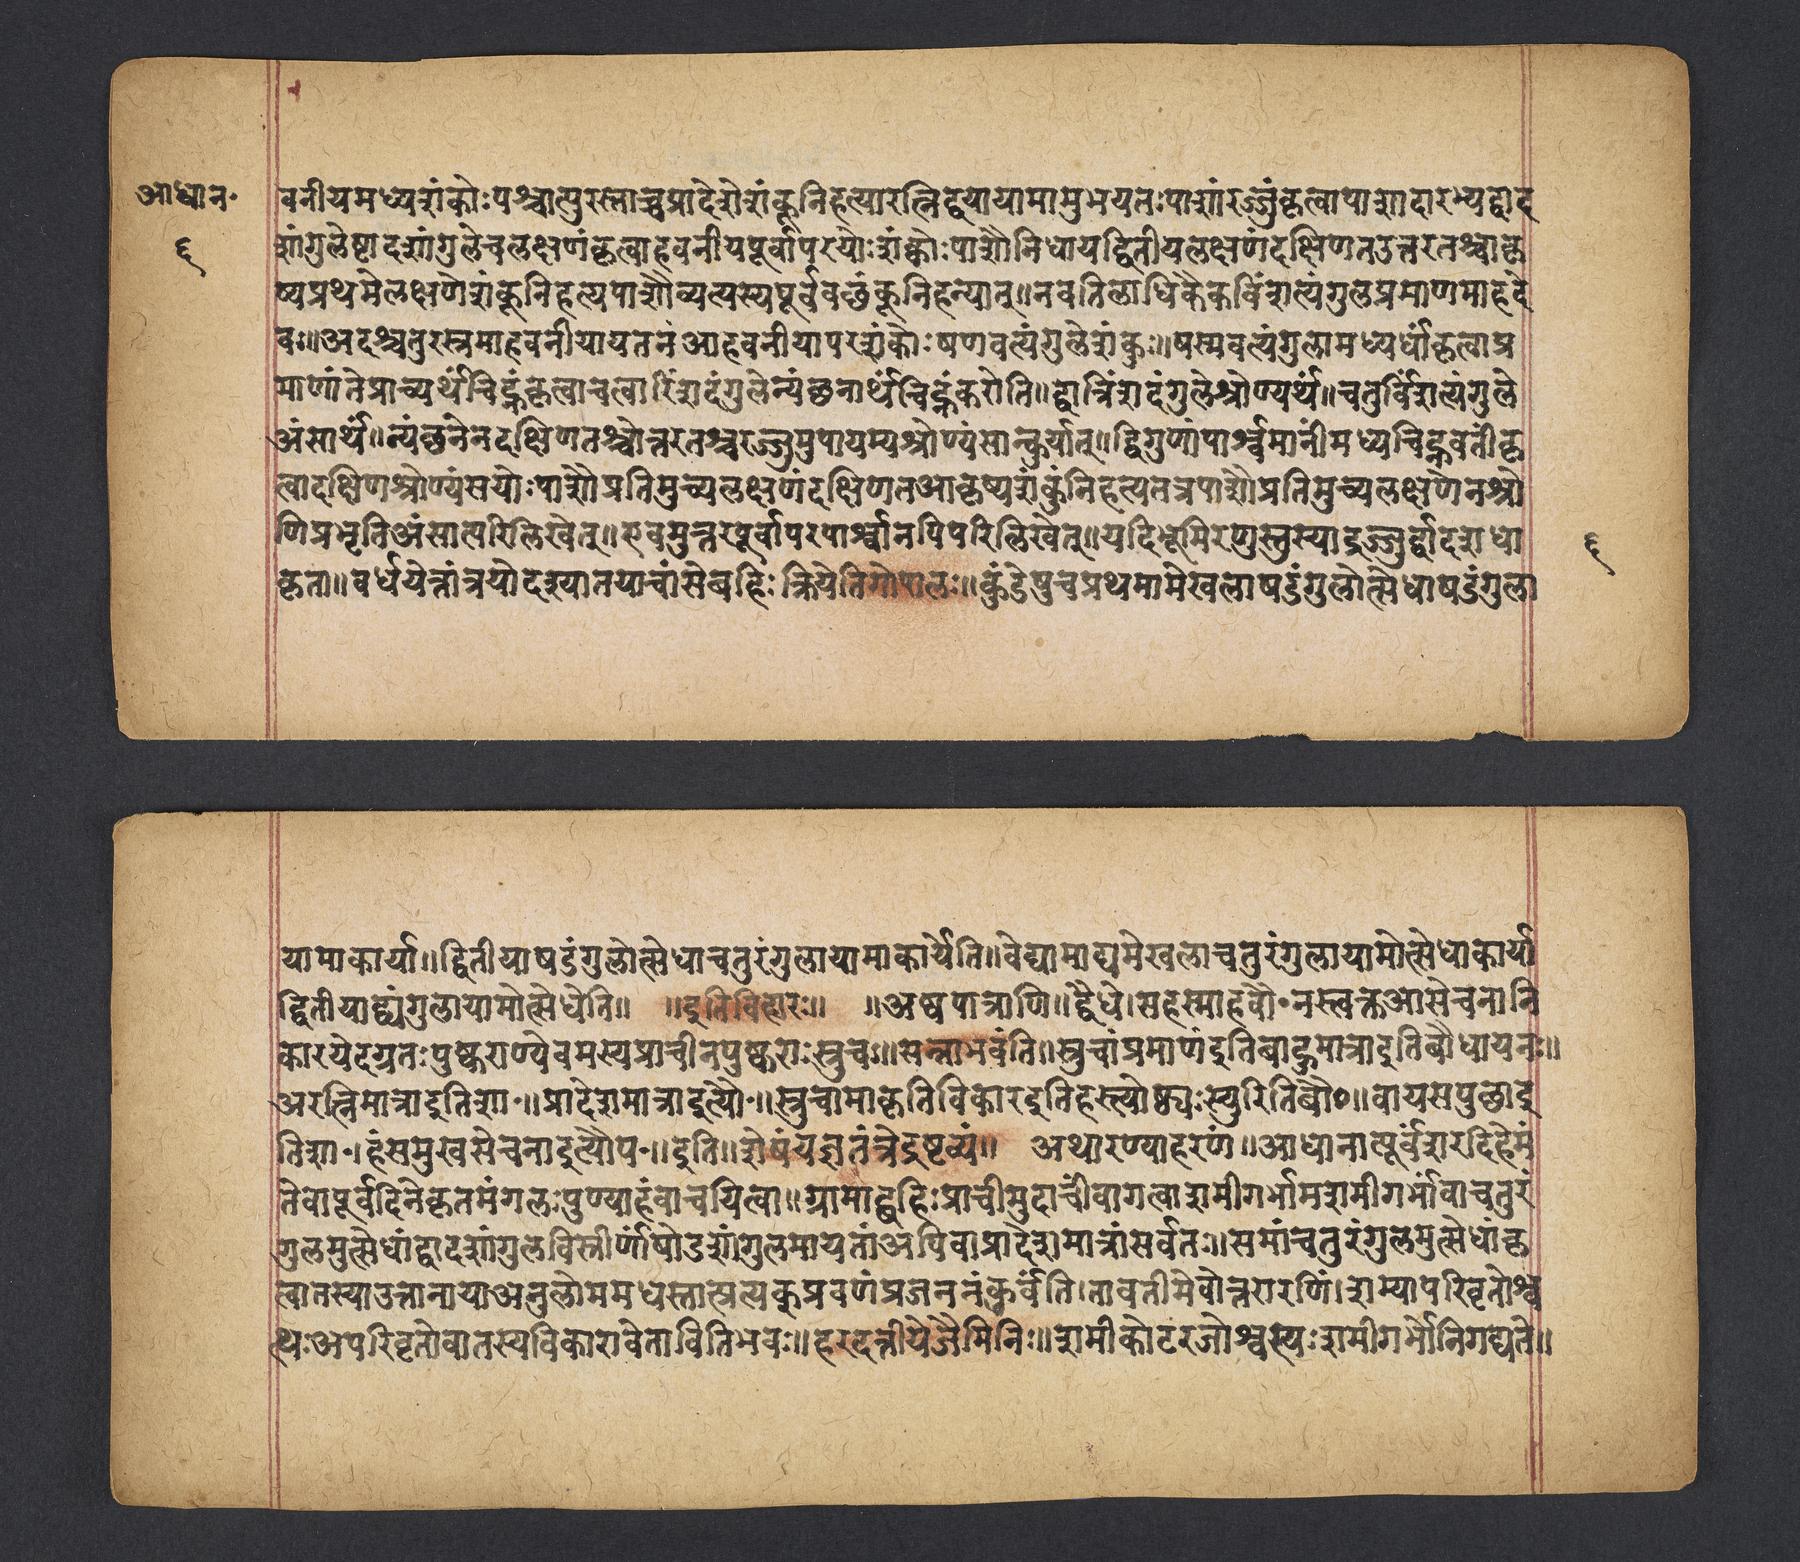 आधान॰
६
वनीयमध्यशंकोःपश्चात्पुरस्ताच्चप्रादेशेशंकूनिहत्यारत्निद्वयायामामुभयतःपाशांरज्जुंकृत्वापाशादारभ्यद्वाद
शांगुलेष्टादशांगुलेचलक्षणंकृत्वाहवनीयपूर्वापरयोःशंक्कोःपाशौनिधायद्वितीयलक्षणंदक्षिणतउत्तरतश्चाकृ
ष्यप्रथमेलक्षणेशंकूनिहत्यपाशौव्यत्यस्यपूर्ववछंकूनिहन्यात्॥नवतिलाधिकैकविंशत्यंगुलप्रमाणमाहदे
वः॥अदश्चतुरस्रमाहवनीयायतनंआहवनीयापरशंकोःषणवत्यंगुलेशंकुः॥षस्मवत्यंगुलामध्यर्धांकृत्वाप्र
माणांतेप्राच्यर्थंचिह्नंकृत्वाचत्वारिंशदंगुलेन्यंछनार्थंचिह्नंकरोति॥द्वात्रिंशदंगुलेश्रोण्यर्थं॥चतुर्विंशत्यंगुले
अंसार्थं॥न्यंछनेनदक्षिणतश्चोत्तरतश्चरज्जुमुपायम्यश्रोण्यंसान्कुर्यात्॥द्विगुणांपार्श्वमानींमध्यचिह्नवतींकृ
त्वादक्षिणश्रोण्यंसयोःपाशौप्रतिमुच्यलक्षणंदक्षिणतआकृष्यशंकुंनिहत्यतत्रपाशौप्रतिमुच्यलक्षणेनश्रो
णिप्रभृतिअंसात्परिलिखेत्॥एवमुत्तरपूर्वापरपार्श्वानपिपरिलिखेत्॥यदिभूमिरणुस्तुस्याद्रज्जुर्द्वादशधा
कृता॥वर्धयेत्तांत्रयोदश्यातयाचांसेबहिःक्रियेतिगोपालः॥कुंडेषुचप्रथमामेखलाषडंगुलोत्सेधाषडंगुला
६
यामाकार्या॥द्वितीयाषडंगुलोत्सेधाचतुरंगुलायामाकार्येति॥वेद्यामाद्यमेखलाचतुरंगुलायामोत्सेधाकार्या
द्वितीयाद्व्यंगुलायामोत्सेधेति॥ ॥इतिविहारः॥ ॥अथपात्राणि॥द्वैधे।सहस्माहबौ॰नस्त्वक्तआसेचनानि
कारयेदग्रतःपुष्कराण्येवमस्यप्राचीनपुष्कराःस्रुचः॥सन्नाभवंति॥स्रुचांप्रमाणंइतिबाहुमात्राइतिबौधायनः॥
अरत्निमात्राइतिशा॰॥प्रादेशमात्राइत्यौ॰॥स्रुचामाकृतिविकारइतिहस्त्योष्ठ्यःस्युरितिबौ०॥वायसपुछाइ
तिशा॰।हंसमुखसेचनाइत्यौप॰॥इति॥शेषंयज्ञतंत्रेद्रष्टव्यं॥ अथारण्याहरणं॥आधानात्पूर्वंशरदिहेमं
तेवापूर्वदिनेकृतमंगलःपुण्याहंवाचयित्वा॥ग्रामाद्बहिःप्राचीमुदाचींवागत्वाशमीगर्भामशमीगर्भांवाचतुरं
गुलमुत्सेधांद्वादशांगुलविस्तीर्णांषोडशांगुलमायतांअपिवाप्रादेशमात्रांसर्वतः॥समांचतुरंगुलमुत्सेधांकृ
त्वातस्याउत्तानायाअनुलोममधस्तात्प्रत्यक्प्रवणंप्रजननंकुर्वंति।तावतीमेवोत्तरारणिं।शम्यापरिवृतोश्व
त्थःअपरिवृतोवातस्यविकारावेताविति‌भवः॥हरदत्तीयेजैमिनिः॥शमीकोटरजोश्वस्थःशमीगर्भोनिगद्यते॥